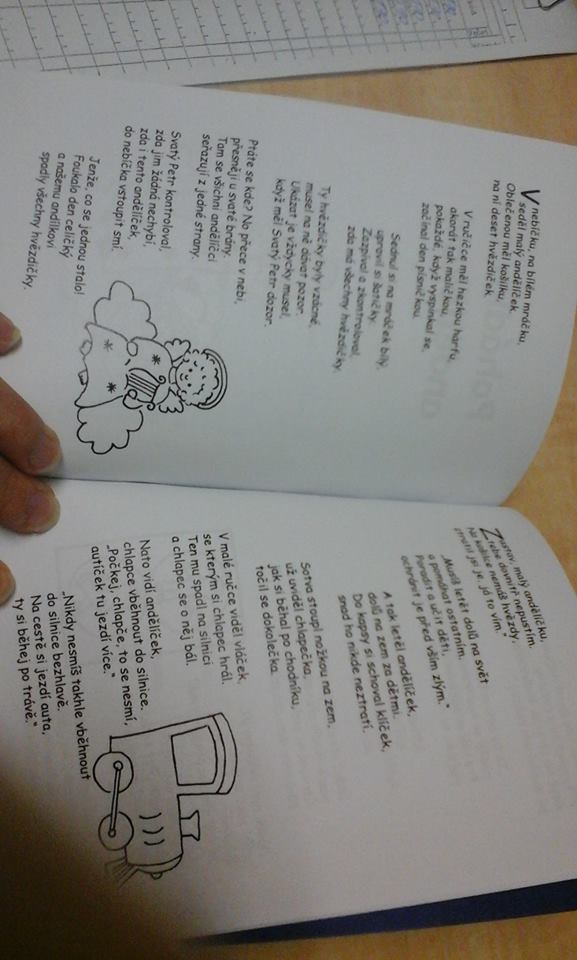 V nebíčku, na bílém mráčku,
seděl malý andělíček.
Oblečenou měl košilku,
na ní deset hvězdiček.
V ručičce měl hezkou harfu,
akorát tak maličkou,
pokaždé, když vyspinkal se,
začínal den písničkou.
Sednul si na mráček bílý,
upravil si šatičky.
Zazpíval a zkontroloval,
zda má všechny hvězdičky.
Ty hvězdičky byly vzácné,
musel na ně dávat pozor.
Ukázat je vždycky musel,
když měl Svatý Petr dozor.
Ptáte se kde? No přece v nebi,
přesněji u svaté brány.
Tam se všichni andělíčci
seřazují z jedné strany.
Svatý Petr kontroloval,
zda jim žádná nechybí,
zda i tento andělíček,
do nebíčka vstoupit smí.
Jenže, co se jednou stalo!
Foukalo den celičký
a našemu andílkovi
spadly všechny hvězdičky.
Zůstaň, malý andělíčku,
tebe dovnitř nepustím.
Na košilce nemáš hvězdy,
ztratil jsi je, já to vím."
„Musíš letět dolů na svět
a pomáhat ostatním.
Poradit a učit děti,
ochránit je před vším zlým."
A tak letěl andělíček,
dolů na zem za dětmi.
Do kapsy si schoval klíček,
snad ho nikde neztratí.
Sotva stoupl nožkou na zem,
už uviděl chlapečka,
jak si běhal po chodníku,
točil se dokolečka.
V malé ručce viděl vláček,
se kterým si chlapec hrál.
Ten mu spadl na silnici
a chlapec se o něj bál.
Nato vidí andělíček,
chlapce vběhnout do silnice.
„Počkej, chlapče, to se nesmí,
autíček tu jezdí více."
„Nikdy nesmíš takhle vběhnout
do silnice bezhlavě.
Na cestě si jezdí auta,
ty si běhej po trávě."